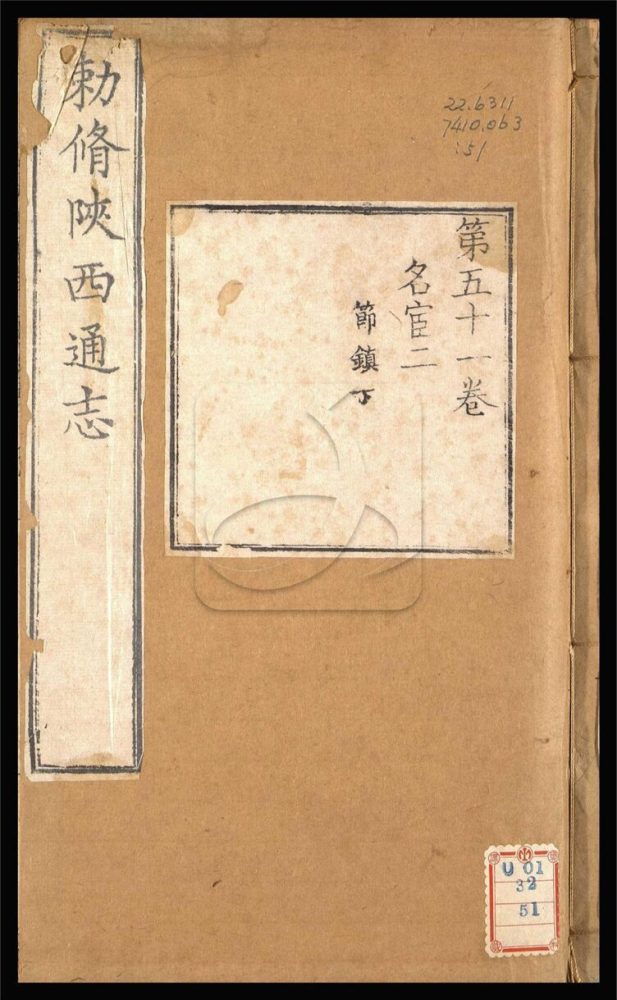 勅脩陝西通志
第五十一卷
名宦二
節鎮下
22.6311
7410.063
:51
U 01
32
51